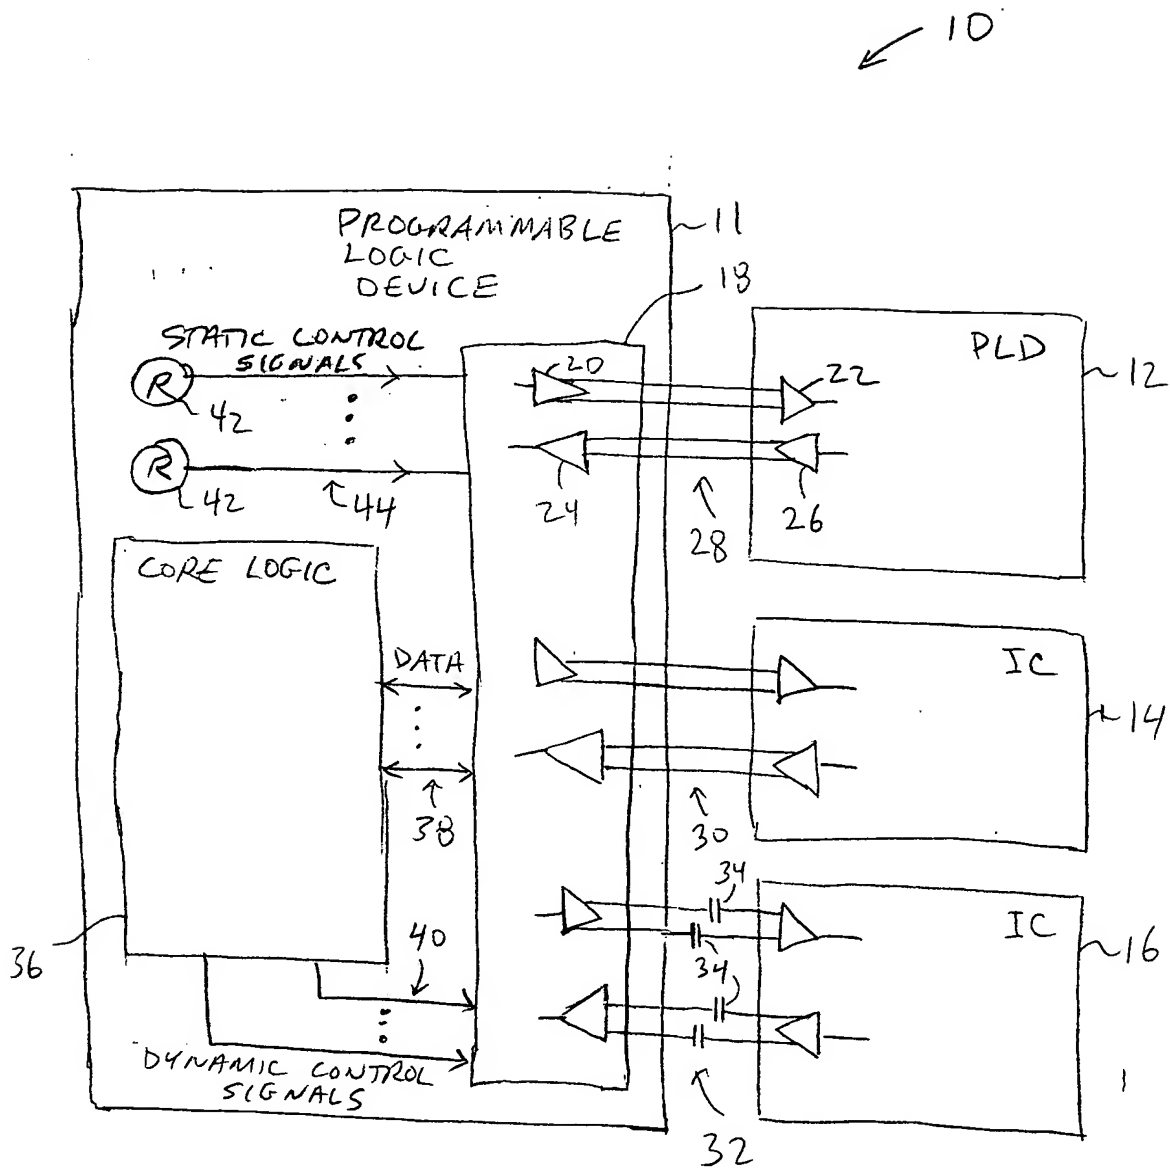 10
PROGRAMMABLE
LOGIC
DEVICE
11
18
STATIC CONTROL
SIGNALS
R
42
R
42
44
20
22
24
26
28
PLD
12
CORE LOGIC
DATA
38
IC
14
30
36
40
34
34
IC
16
DYNAMIC CONTROL
SIGNALS
32